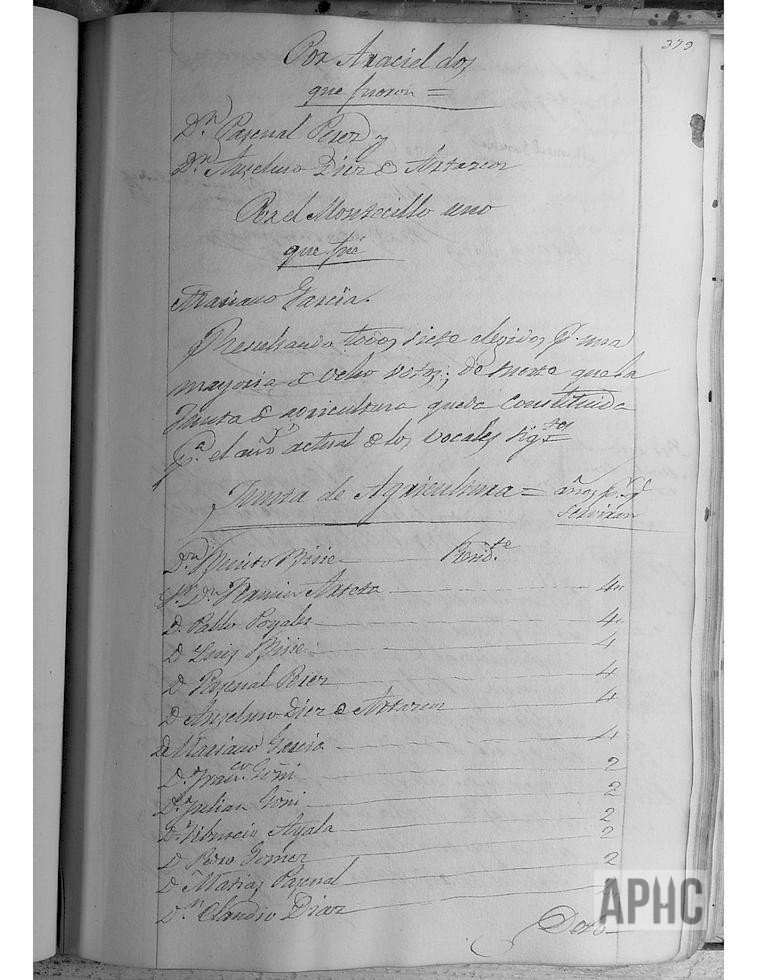 379.
Por Araciel dos
que fueron =
Dn Pascual Perez y
Dn Anselmo Diez de Artazcoz
Por el Montecillo uno
que fué
Mariano Garcia.
Resultando todos siete elegidos pr una
mayoria de ocho votos; de suerte que la
Junta de agricultura queda constituida
pa el año actual de los vocales sigtes
Junta de Agricultura = años pr qe
serviran
Dn Benito Presidte
Sr Dn Ramon 4
D. Pablo Poyales 4
D Luis 4
D Pascual Perez 4
D Anselmo Diez de Artazcoz 4
D Mariano Garcia 4
D. Franco Goñi 2
D. Julian Goñi 2
D. Ayala 2
D Pedro Gomez 2
D Matias Pascual 2
Dn Claudio Diaz
APHC